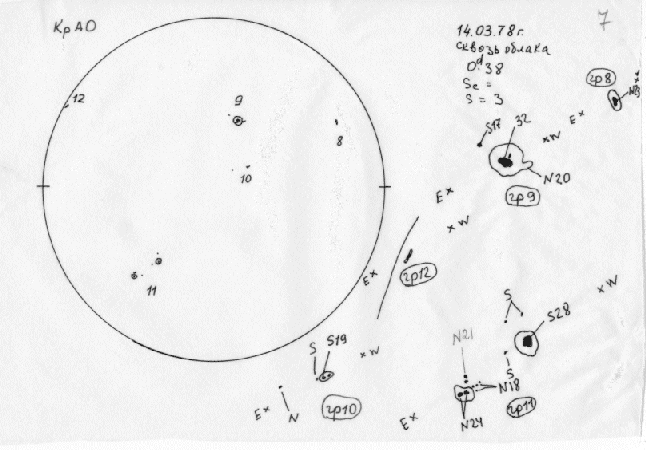 КрАО
7
14.03.78г.
сквозь облака
0ᵈ.38
Sc =
S = 3
12
9
8
10
11
гр8
E
W
S17
32
N20
гр9
E
W
гр12
E
S
S28
W
N21
S
N18
N24
гр11
E
S
S19
W
гр10
E
N